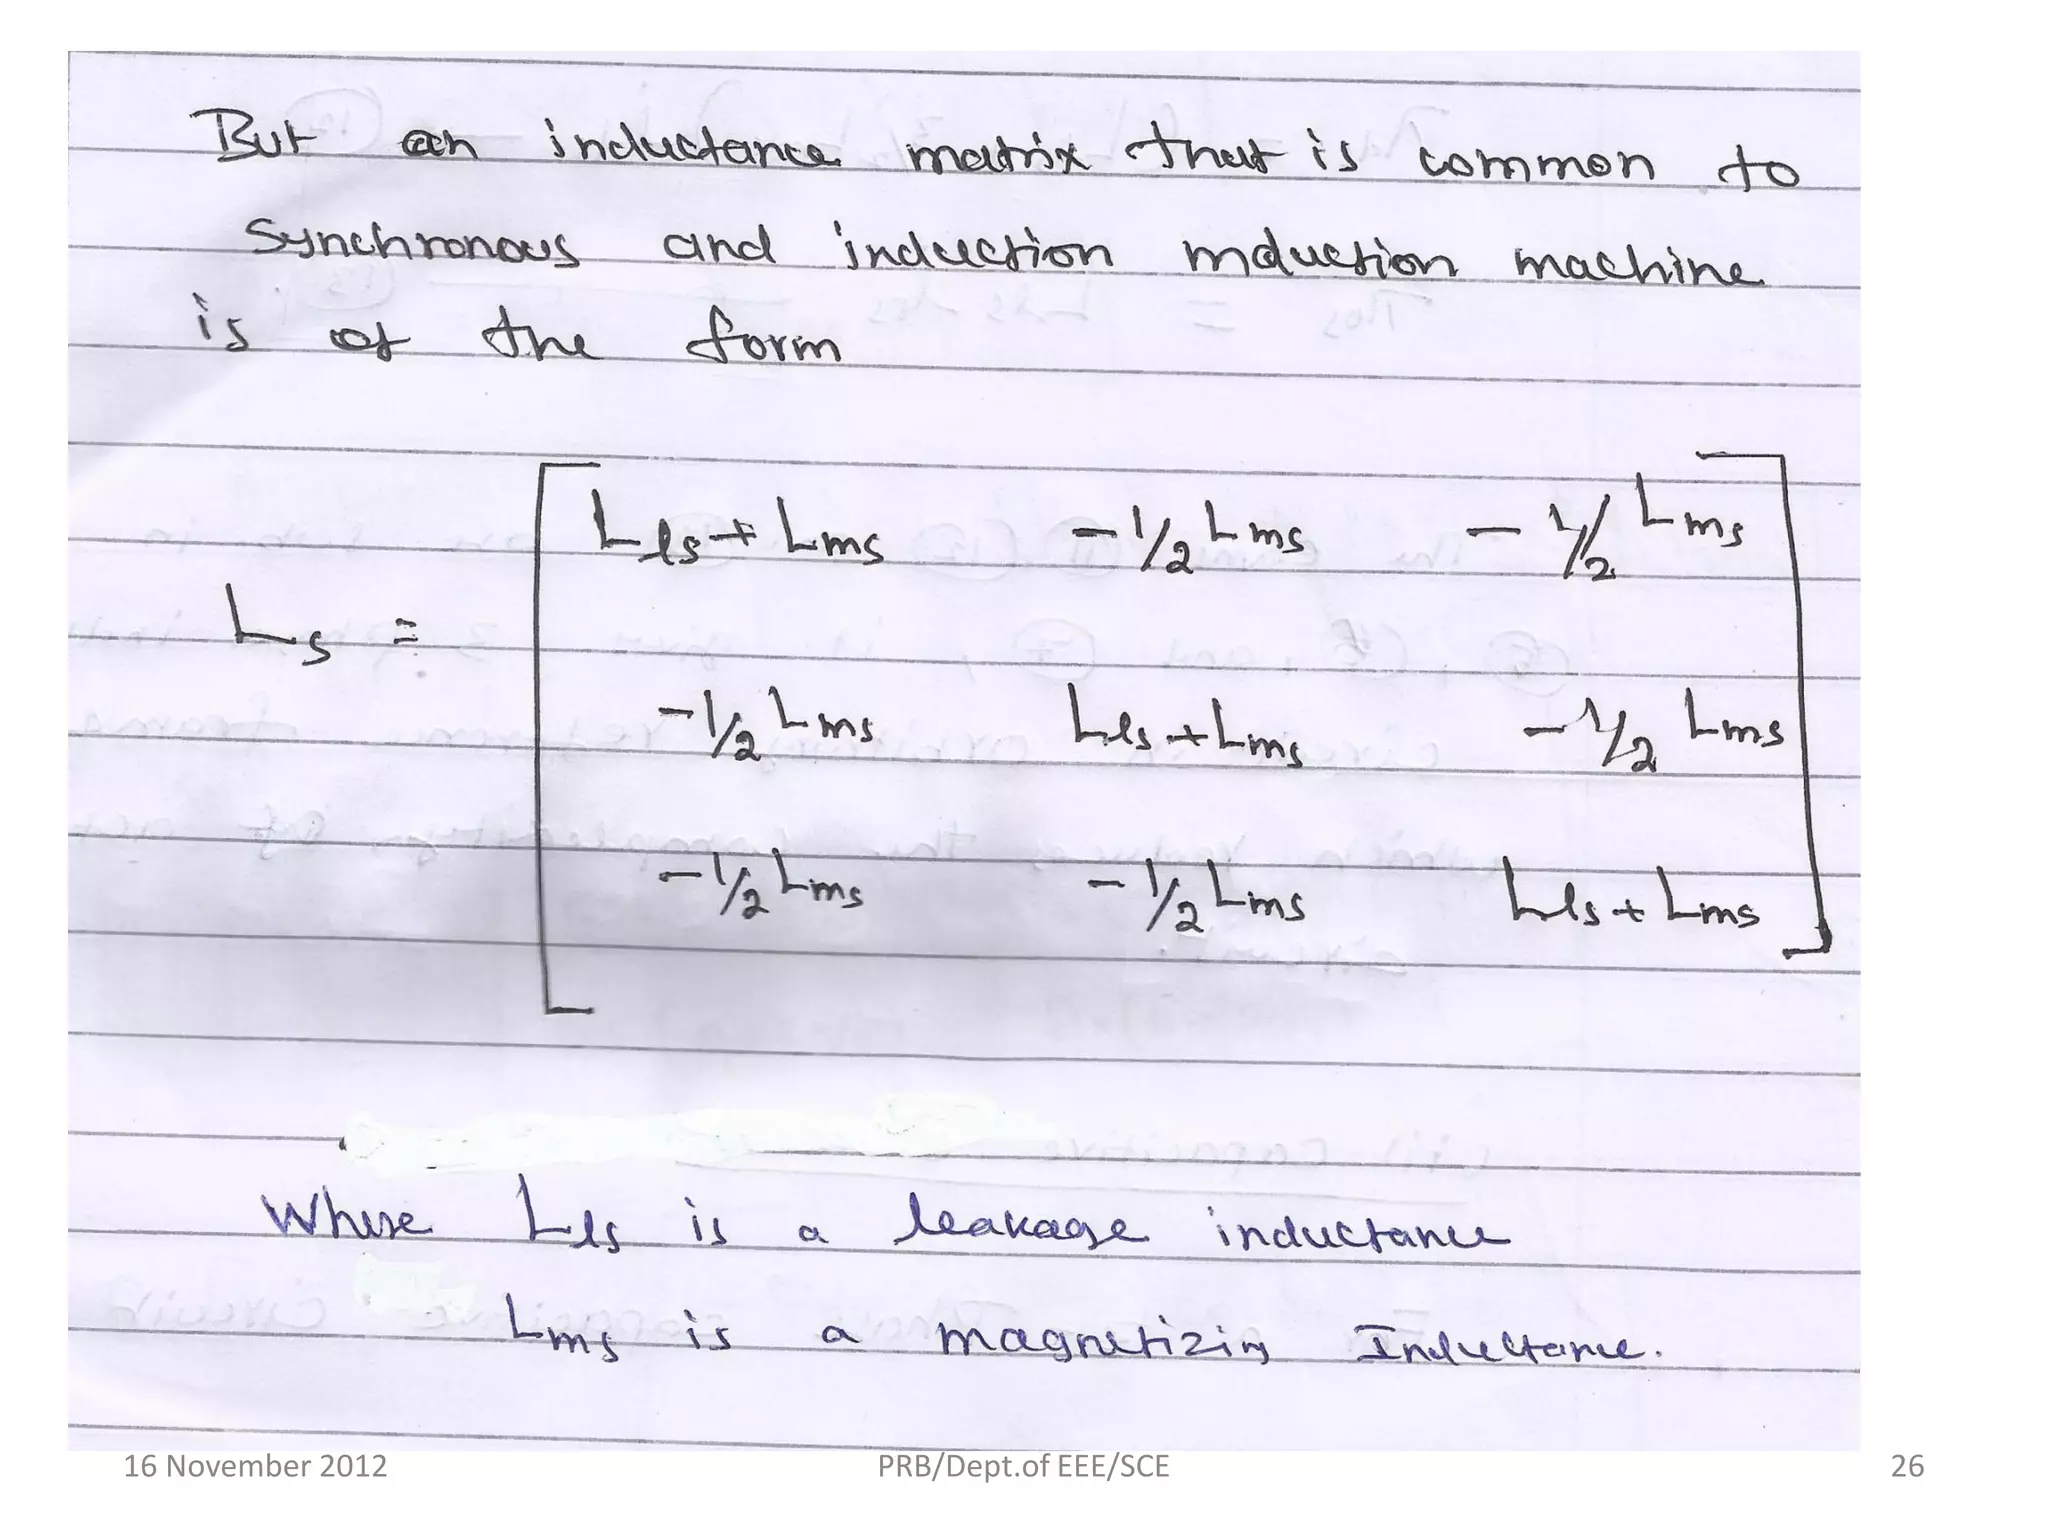 But an inductance matrix that is common to
synchronous and induction induction machine
is of the form
Ls = [ Lls + Lms   -1/2 Lms   -1/2 Lms
-1/2 Lms   Lls + Lms   -1/2 Lms
-1/2 Lms   -1/2 Lms   Lls + Lms ]
Where Lls is a leakage inductance
Lms is a magnetizing Inductance.
16 November 2012 PRB/Dept.of EEE/SCE 26